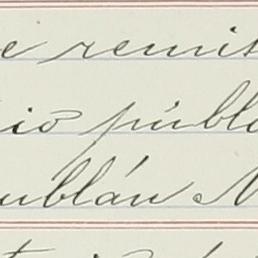 e remis
io públ
ublán N